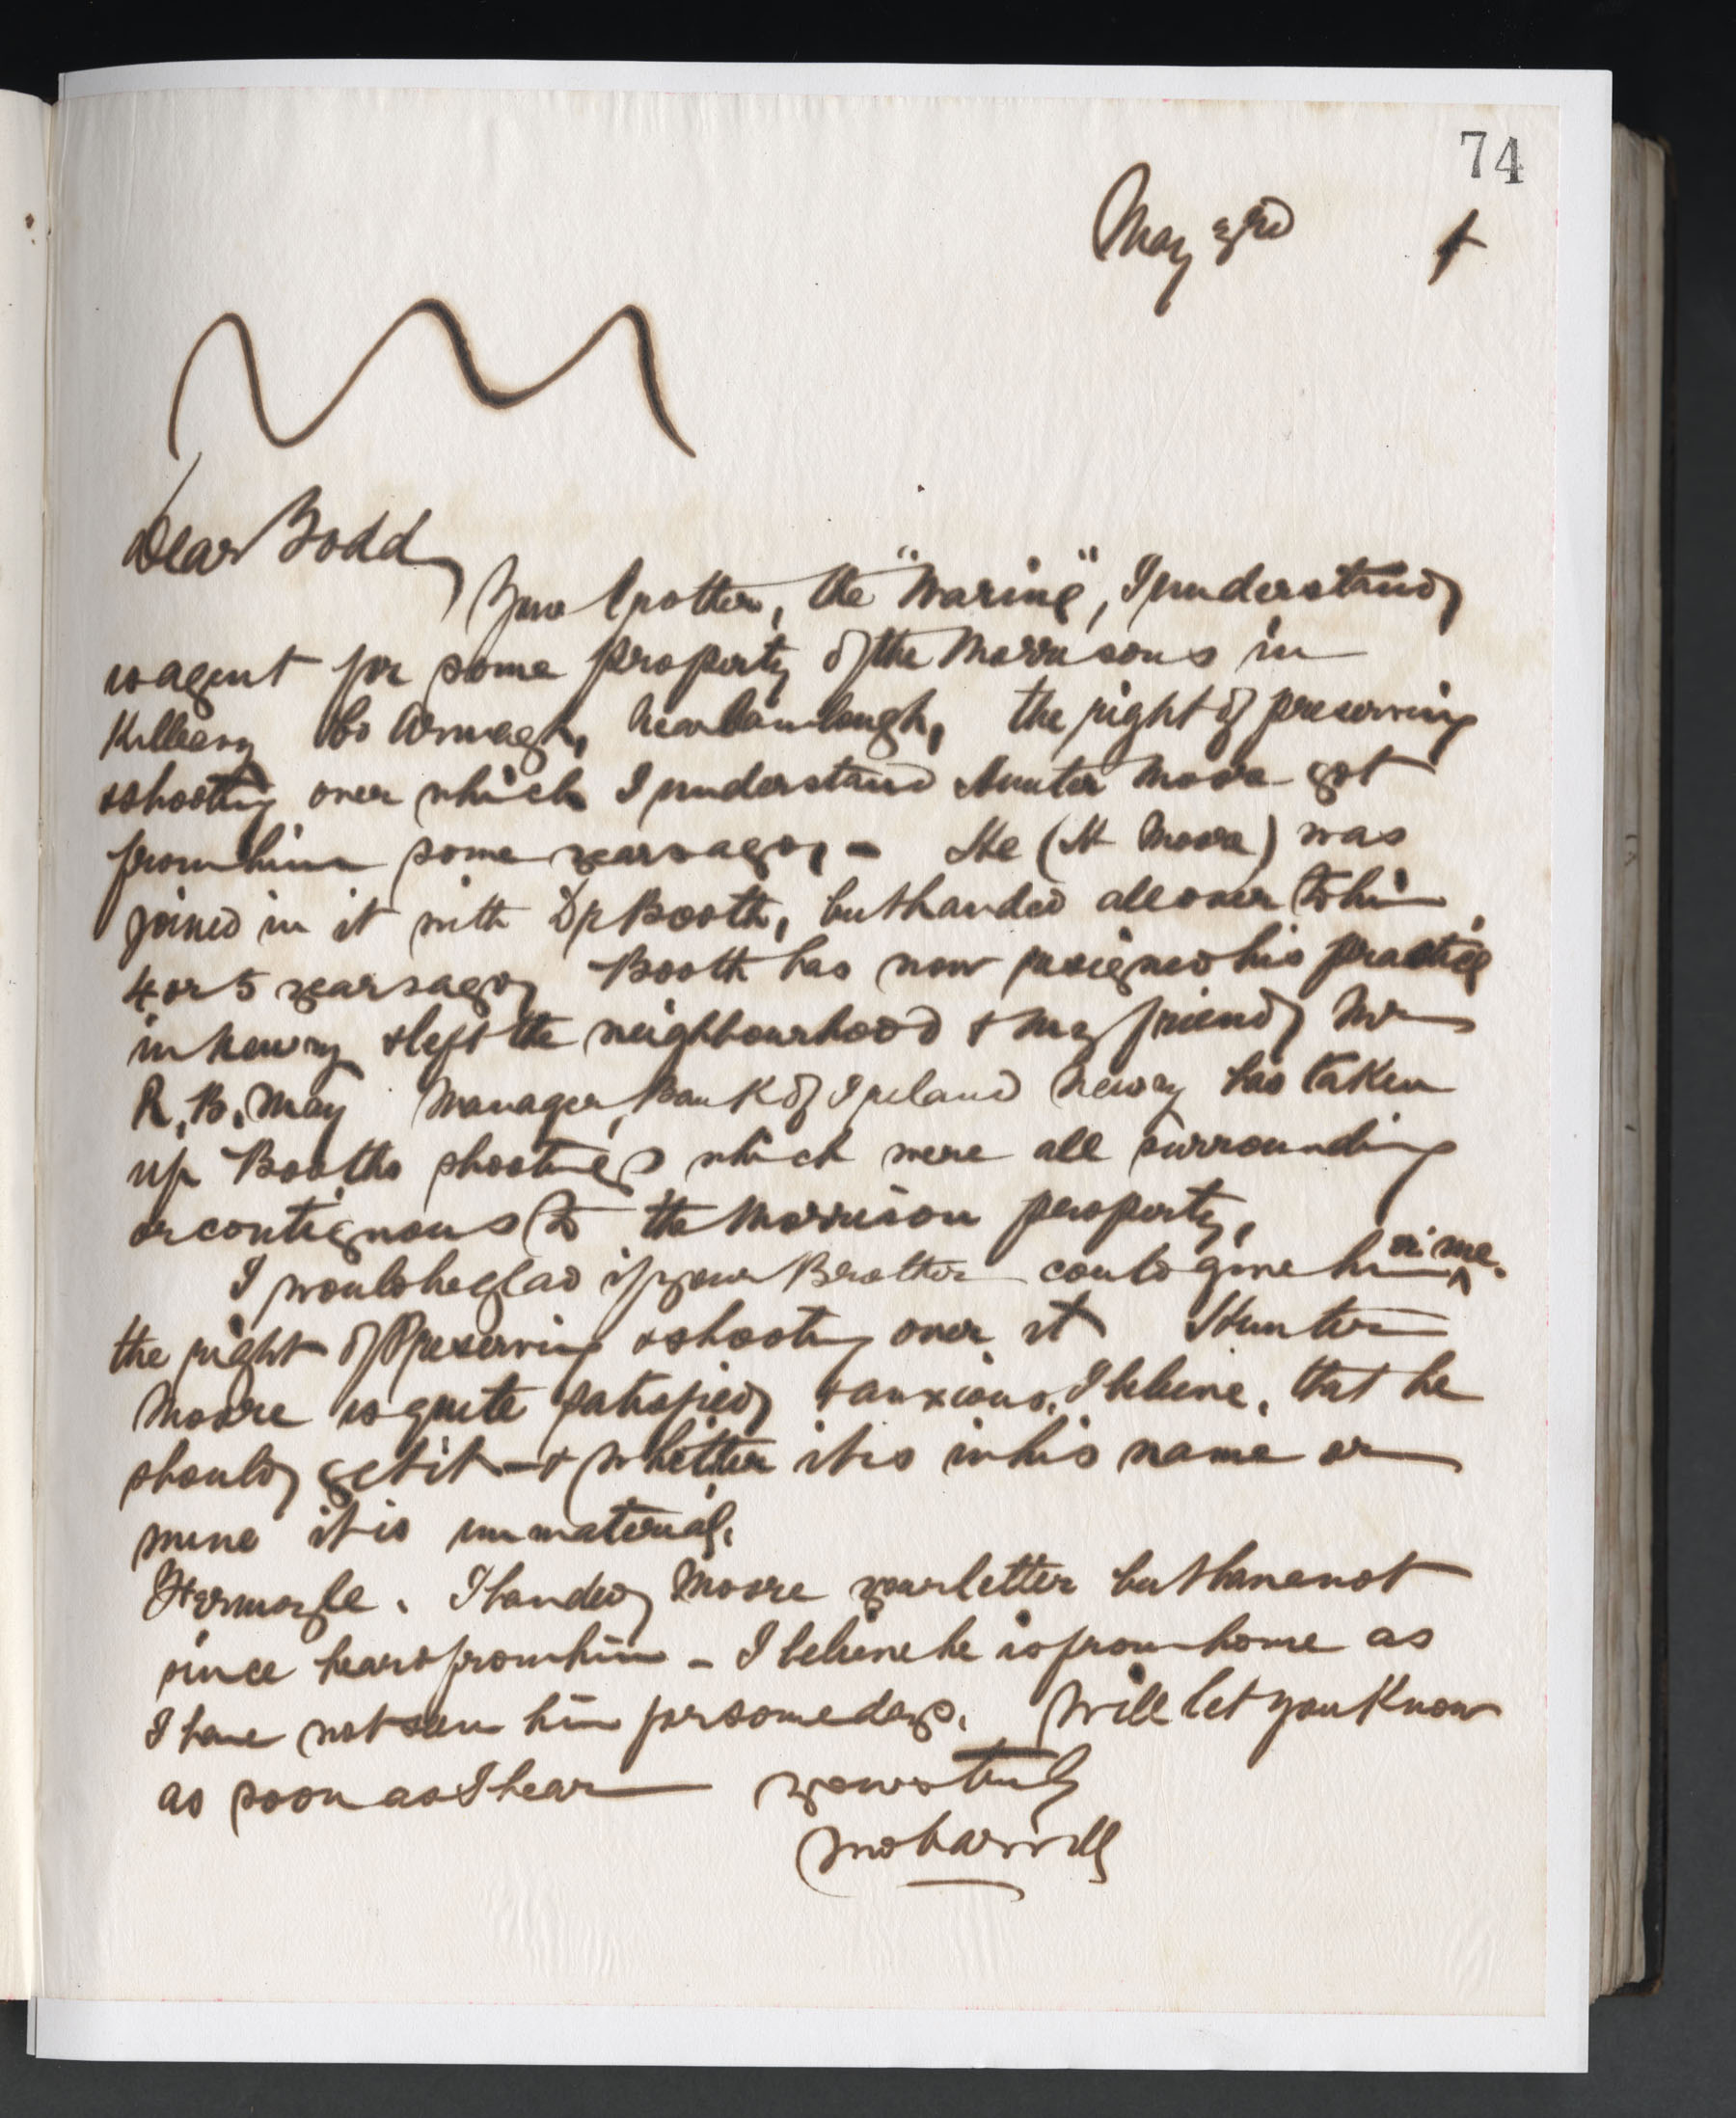 74
May 3rd 4
Dear Todd
Your brother, the "Waring", I understand
is agent for some property of the Morrisons in
Killeavy Co Armagh, near Camlough, the right of preserving
& shooting over which I understand Hunter Moore got
from him some years ago, - He (H Moore) was
joined in it with Dr Booth, but handed all over to him
4 or 5 years ago, Booth has now resigned his practice
in Newry & left the neighbourhood & my friend Mr
R. B. May Manager Bank of Ireland Newry has taken
up Booths shootings which were all surrounding
or contiguous to the Morrison property,
I would be glad if your Brother could give him ^ or me.
the right of Preserving & shooting over it Hunter
Moore is quite satisfied & anxious, I believe, that he
should get it - & whether it is in his name or
mine it is immaterial.
I handed Moore your letter but have not
since heard from him - I believe he is from home as
I have not seen him for some days. Will let you know
as soon as I hear yours truly